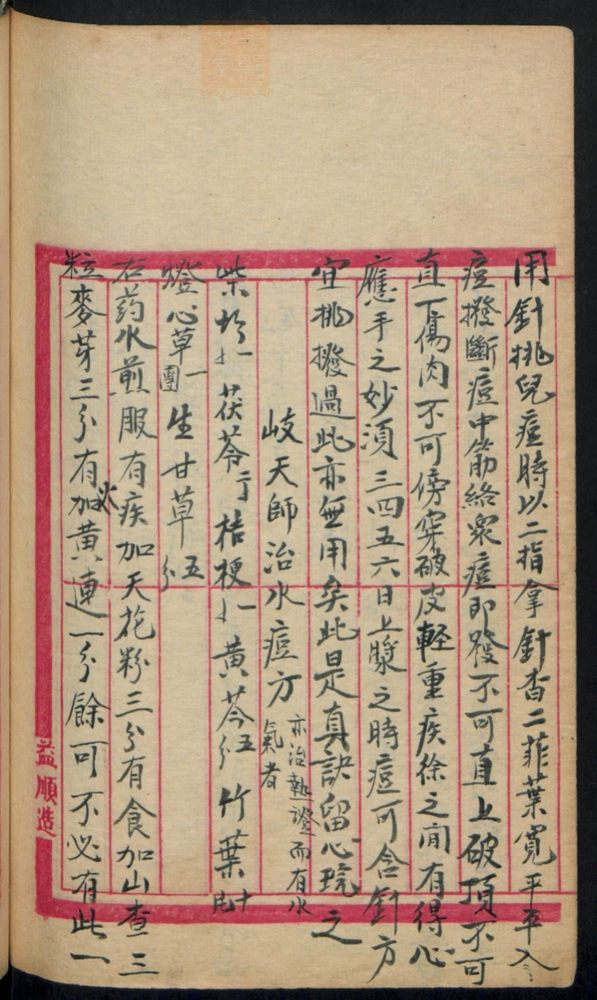 用針挑兒痘時以二指拿針杳二菲葉寬平平入
痘撥斷痘中筋絡衆痘即發不可直上破頂不可
直下傷肉不可傍穿破皮輕重疾徐之间有得心
應手之妙須三四五六日上漿之時痘可含針方
宜挑撥過此亦無用矣此是真訣留心玩之
岐天師治水痘方 亦治熱證而有水氣者
柴胡 茯苓 桔梗 黄芩 竹葉
燈心草一團 生甘草五分
右药水煎服有疾加天花粉三分有食加山查三
粒麥芽三分有火加黄連一分餘可不必有此一
益順造